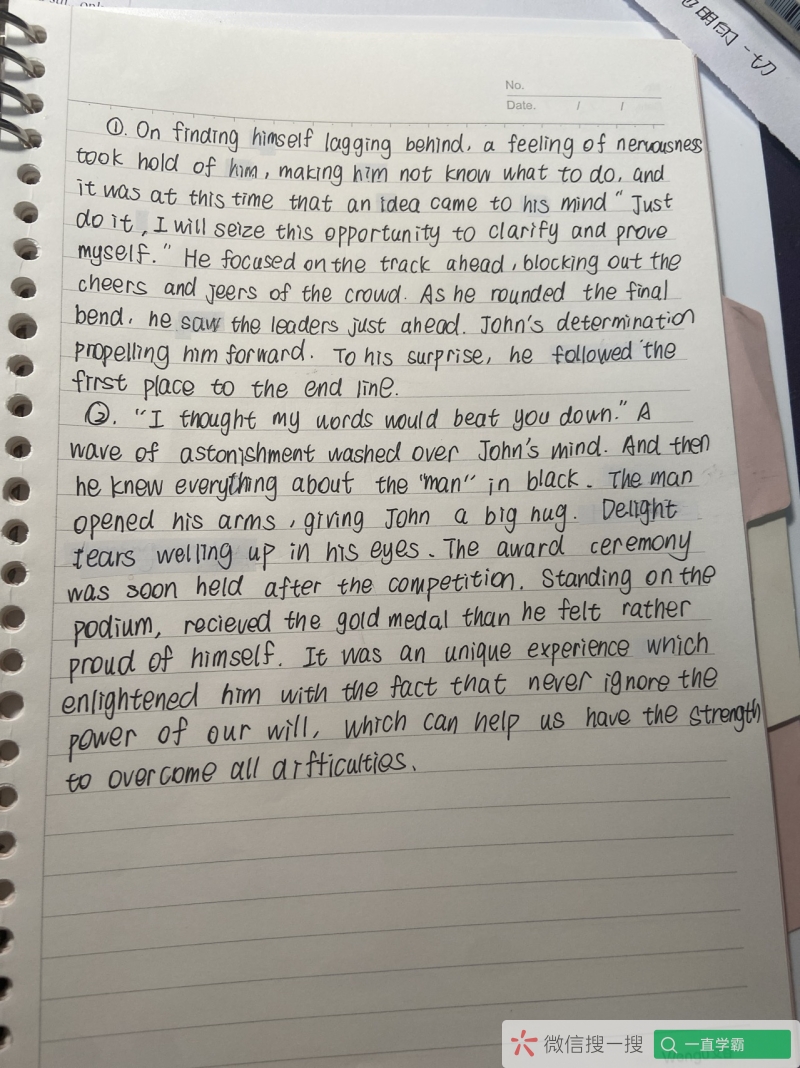 明的一切
No.
Date. / /
①. On finding himself lagging behind, a feeling of nervousness
took hold of him, making him not know what to do, and
it was at this time that an idea came to his mind " Just
do it, I will seize this opportunity to clarify and prove
myself." He focused on the track ahead, blocking out the
cheers and jeers of the crowd. As he rounded the final
bend, he saw the leaders just ahead. John's determination
propelling him forward. To his surprise, he followed the
first place to the end line.
②. "I thought my words would beat you down." A
wave of astonishment washed over John's mind. And then
he knew everything about the "man" in black. The man
opened his arms, giving John a big hug. Delight
tears welling up in his eyes. The award ceremony
was soon held after the competition. Standing on the
podium, recieved the gold medal than he felt rather
proud of himself. It was an unique experience which
enlightened him with the fact that never ignore the
power of our will, which can help us have the strength
to overcome all difficulties.
微信搜一搜
一直学霸